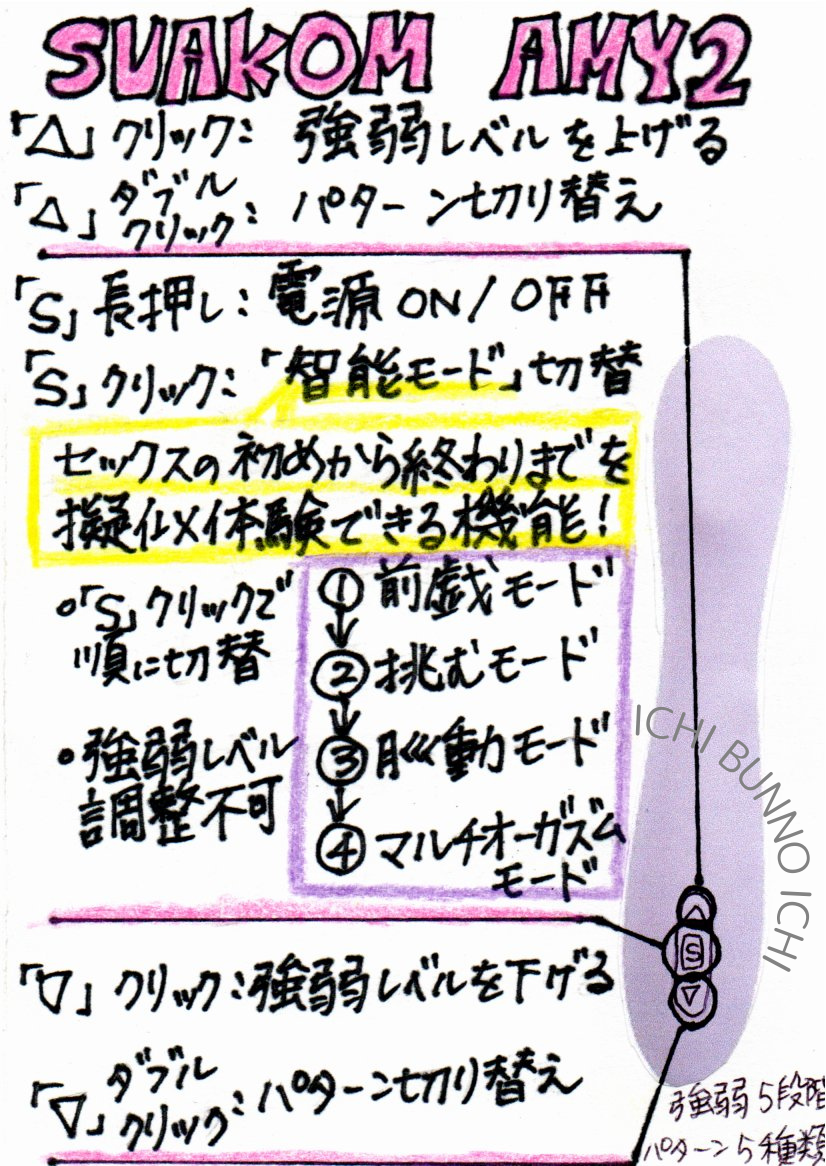 SVAKOM AMY2
「△」クリック: 強弱レベルを上げる
「△」ダブルクリック: パターン切り替え
「S」長押し: 電源 ON/OFF
「S」クリック: 「智能モード」切替
セックスの初めから終わりまでを
擬似体験できる機能!
・「S」クリックで
順に切替
・強弱レベル
調整不可
① 前戯モード
↓
② 挑むモード
↓
③ 脈動モード
↓
④ マルチオーガズム
モード
「▽」クリック: 強弱レベルを下げる
「▽」ダブルクリック: パターン切り替え
△
S
▽
ICHI BUNNO ICHI
強弱5段階
パターン5種類